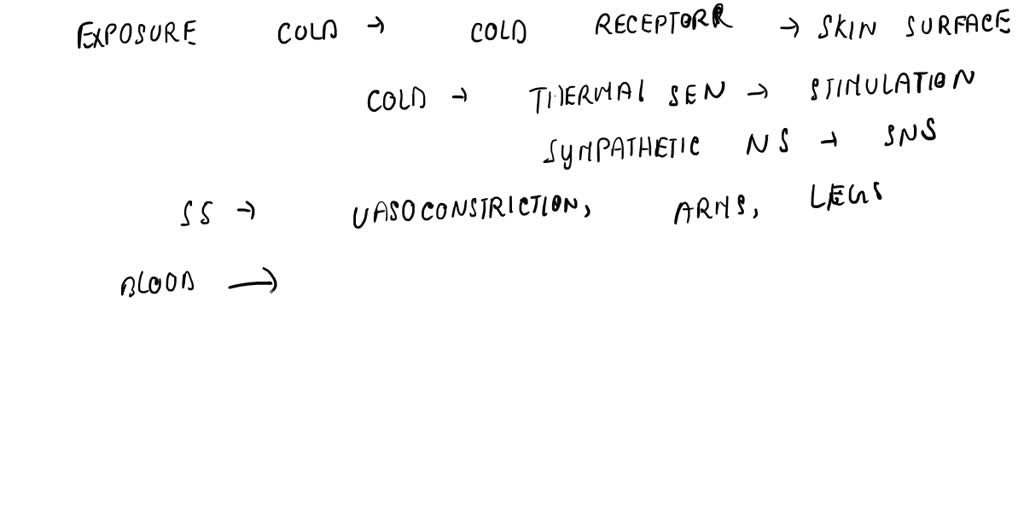 EXPOSURE COLD → COLD RECEPTORR → SKIN SURFACE
COLD → THERMAL SEN → STIMULATION
SYMPATHETIC NS → SNS
SS → VASOCONSTRICTION, ARMS, LEGS
BLOOD →